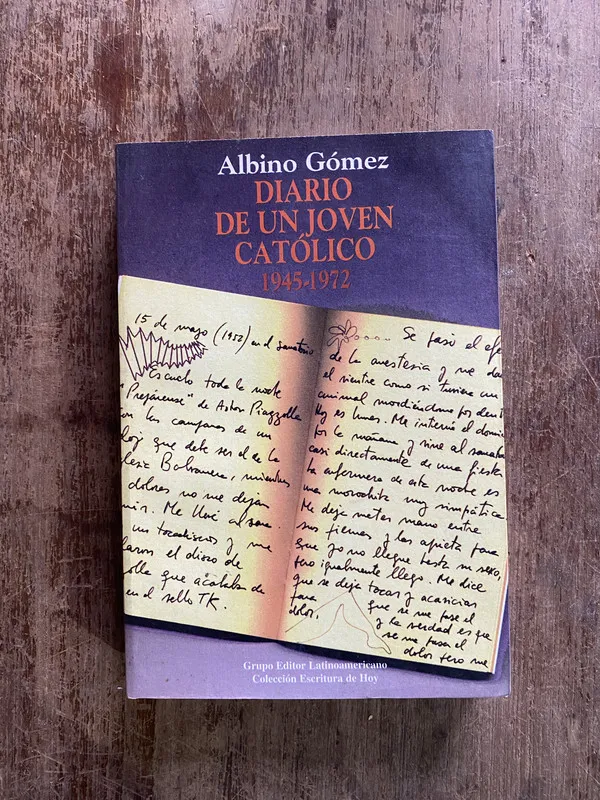 Albino Gómez
DIARIO
DE UN JOVEN
CATÓLICO
1945-1972
15 de mayo (1952) en el sanatorio
Escucho toda la noche
"Prepárense" de Astor Piazzolla
con las campanas de un
reloj que debe ser el de la
Iglesia Balvanera, mientras
dolores no me dejan
Me llevé al sana
un tocadiscos y me
el disco de
olla que acababa de
en el sello TK.
Se pasó el efe
de la anestesia y me due
el vientre como si tuviera un
animal mordiéndome por dent
Hoy es lunes. Me interné el domin
por la mañana y vine al sanato
casi directamente de una fiesta
La enfermera de esta noche es
una morochita muy simpática
Me deja meter mano entre
sus piernas y las aprieta para
que yo no llegue hasta su sexo,
pero igualmente llego. Me dice
que se deja tocar y acariciar
para que se me pase el
dolor, y la verdad es que
se me pasa el
dolor pero me
Grupo Editor Latinoamericano
Colección Escritura de Hoy